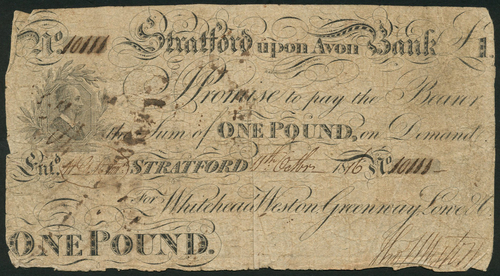 No. 10111 Stratford upon Avon Bank £1
Promise to pay the Bearer
the Sum of ONE POUND, on Demand
Entd. STRATFORD Octbr 1816 No. 10111
For Whitehead, Weston, Greenway, Lowe & Co
ONE POUND.